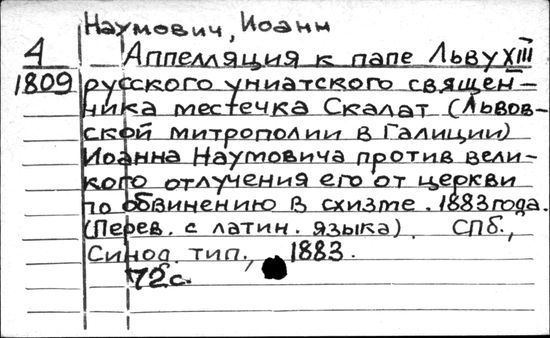 Наумович, Иоанн
4 Аппелляция к папе Льву XIII
1809 русского униатского священ-
ника местечка Скалат (Львов-
ской митрополии в Галиции)
Иоанна Наумовича против вели-
кого отлучения его от церкви
по обвинению в схизме. 1883 года.
(Перев. с латин. языка). СПб.,
Синод. тип., 1883.
72 с.